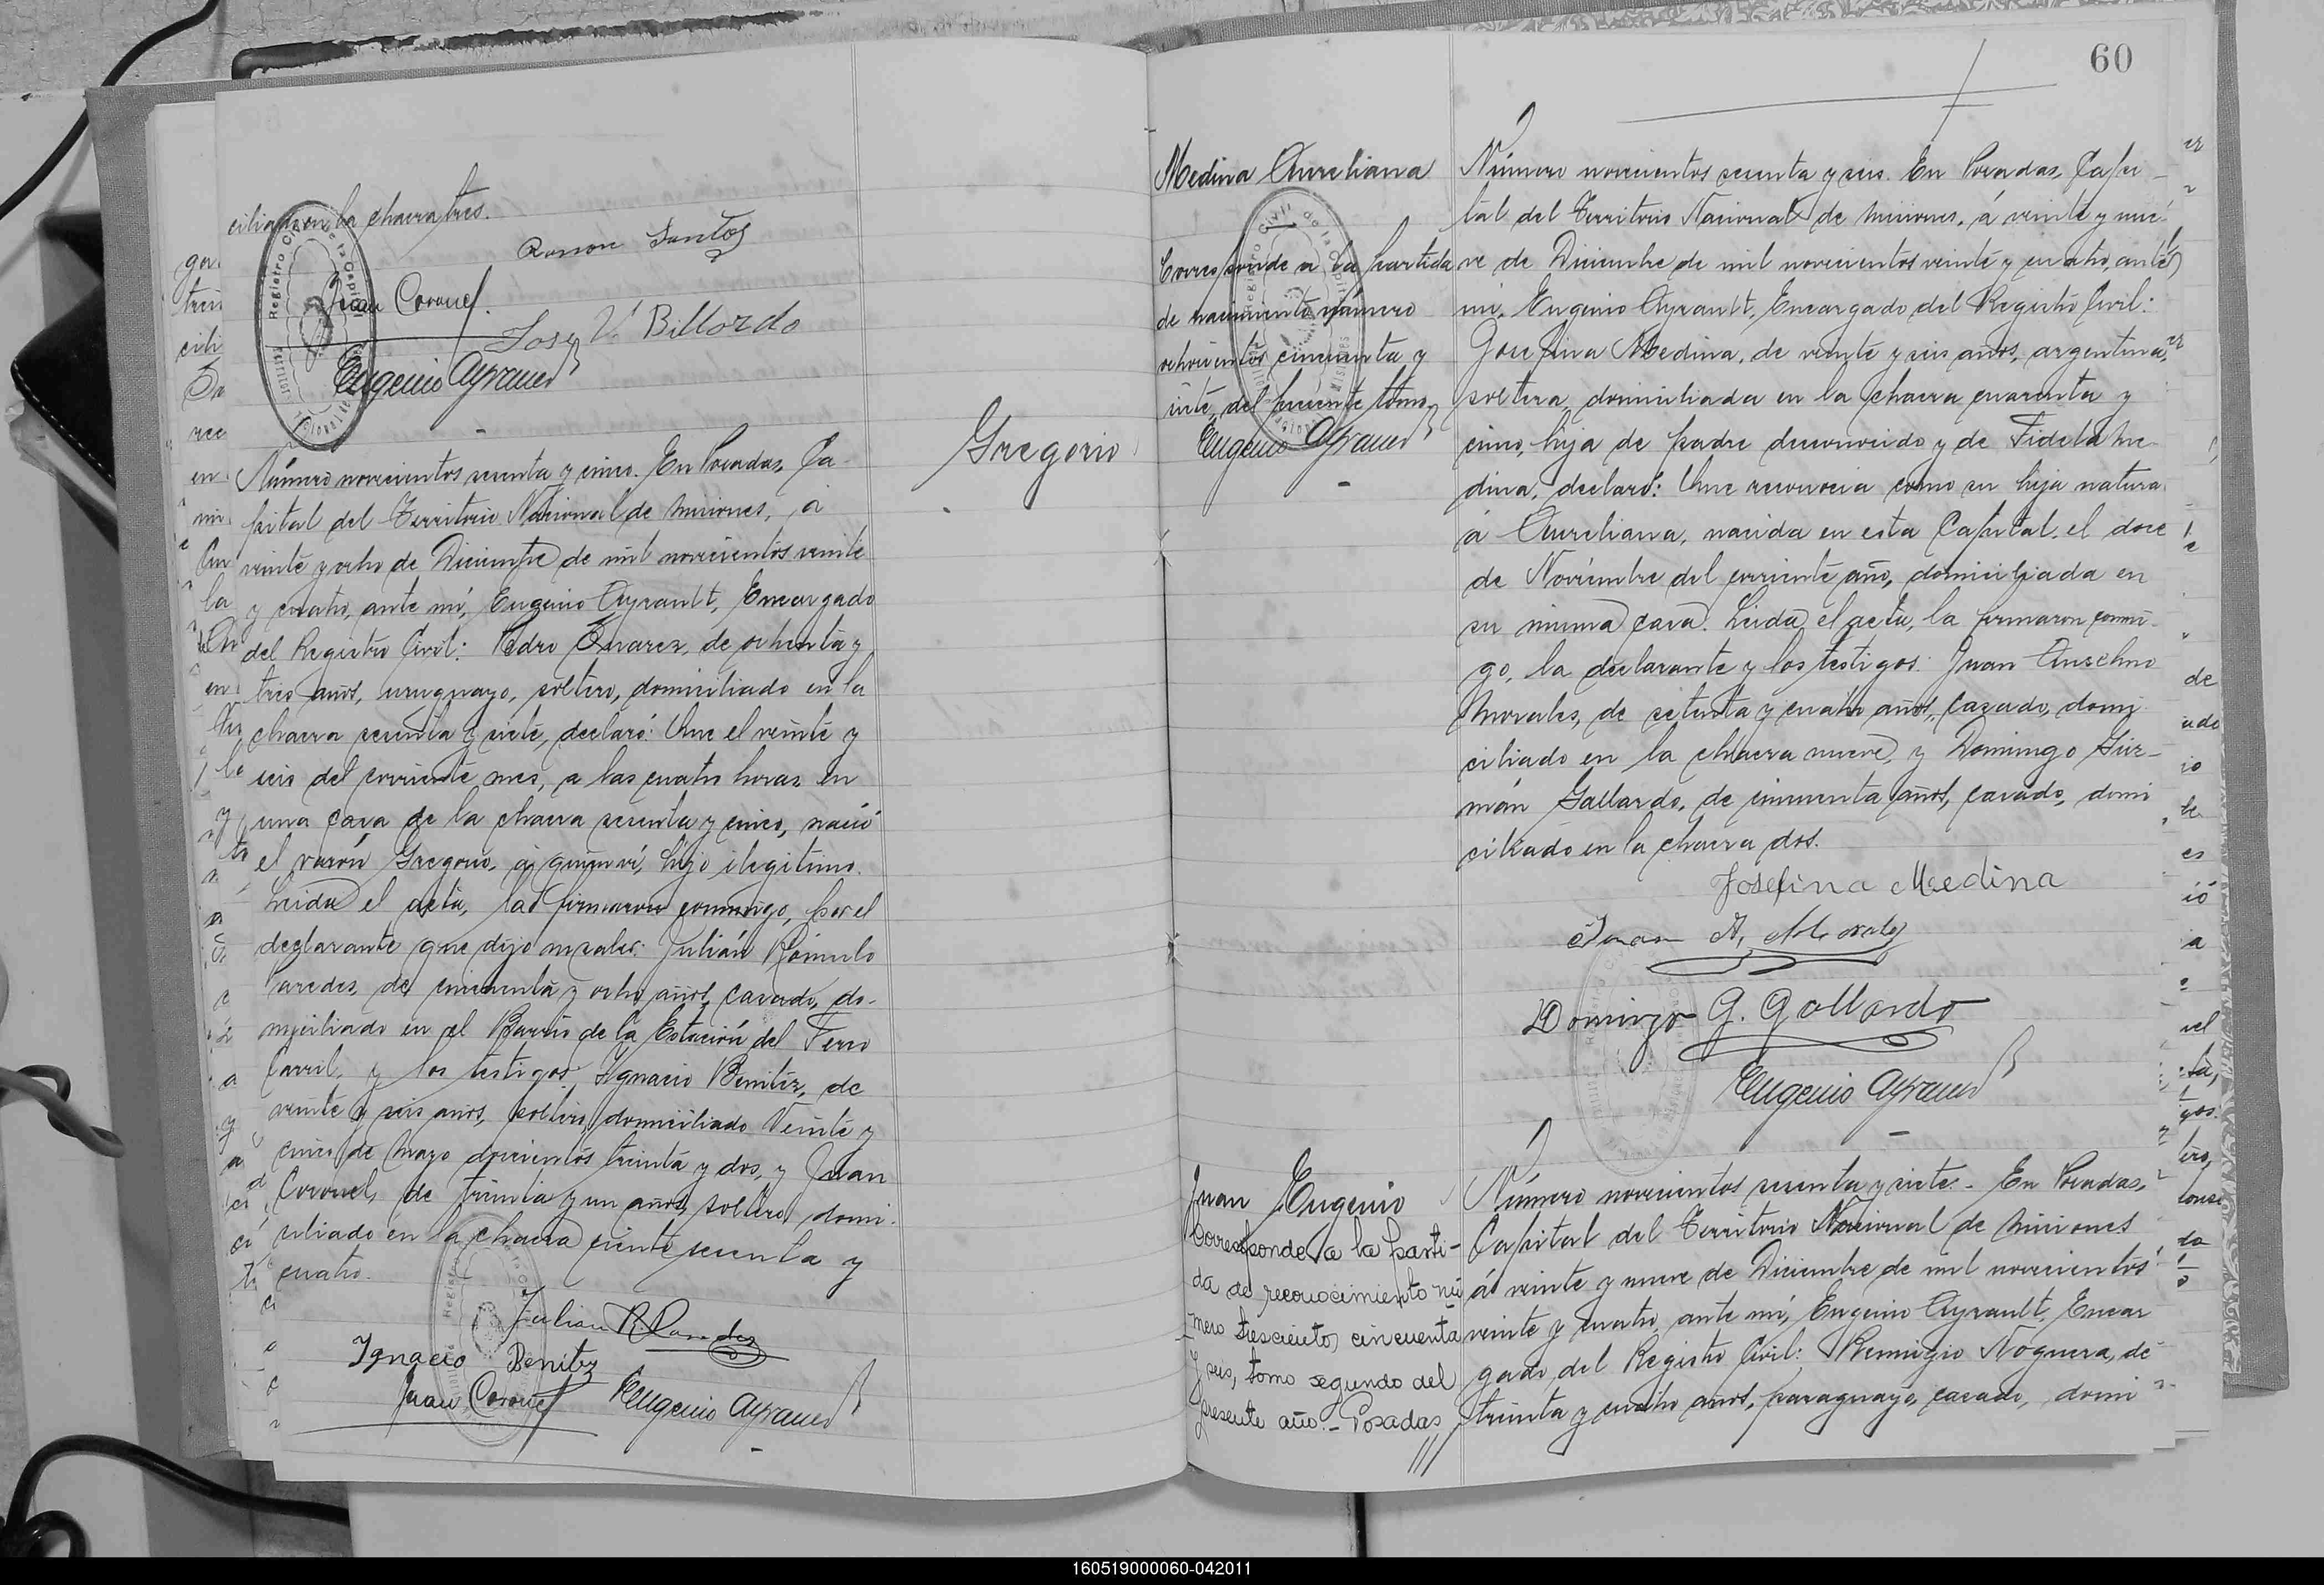 ciliado en la chacra tres.
Ramon Santos
Juan Coronel
Jose V. Billordo
Eugenio Ayrault
Gregorio
Número novecientos sesenta y cinco. En Posadas, Ca-
pital del Territorio Nacional de Misiones, á
veinte y ocho de Diciembre de mil novecientos veinte
y cuatro, ante mí, Eugenio Ayrault, Encargado
del Registro Civil: Pedro Suarez, de ochenta y
tres años, uruguayo, soltero, domiciliado en la
chacra sesenta y siete, declaró: Que el veinte y
seis del corriente mes, a las cuatro horas, en
una casa de la chacra sesenta y cinco, nació
el varón Gregorio, á quien ví, hijo ilegítimo.
Leida el acta, la firmaron conmigo, por el
declarante que dijo no saber: Julián Rómulo
Paredes, de cincuenta y ocho años, casado, do-
miciliado en el Barrio de la Estación del Ferro
Carril, y los testigos: Ignacio Benitez, de
veinte y seis años, soltero, domiciliado Veinte y
cinco de Mayo doscientos treinta y dos, y Juan
Coronel, de treinta y un años, soltero, domi-
ciliado en la chacra ciento sesenta y
cuatro.
Julian R. Paredes
Ignacio Benitez
Juan Coronel Eugenio Ayrault
60
Medina Aureliana
Corresponde a la partida
de nacimiento número
ochocientos cincuenta y
siete, del presente tomo.
Eugenio Ayrault
Número novecientos sesenta y seis. En Posadas, Capi-
tal del Territorio Nacional de Misiones, á veinte y nue-
ve de Diciembre de mil novecientos veinte y cuatro, ante
mi, Eugenio Ayrault, Encargado del Registro Civil:
Josefina Medina, de veinte y seis años, argentina,
soltera, domiciliada en la chacra cuarenta y
cinco, hija de padre desconocido y de Fidela Me-
dina, declaró: Que reconocia como su hija natural
á Aureliana, nacida en esta Capital, el doce
de Noviembre del corriente año, domiciliada en
su misma casa. Leida el acta, la firmaron conmi-
go, la declarante y los testigos: Juan Anselmo
Morales, de setenta y cuatro años, casado, domi-
ciliado en la chacra nueve, y Domingo Ger-
mán Gallardo, de cincuenta años, casado, domi
ciliado en la chacra dos.
Josefina Medina
Juan A. Morales
Domingo G. Gallardo
Eugenio Ayrault
Juan Eugenio
Corresponde a la parti-
da de reconocimiento nú
mero trescientos cincuenta
y seis, tomo segundo del
presente año.- Posadas,
Número novecientos sesenta y siete.- En Posadas,
Capital del Territorio Nacional de Misiones
á veinte y nueve de Diciembre de mil novecientos
veinte y cuatro, ante mí, Eugenio Ayrault, Encar
gado del Registro Civil: Remigio Noguera, de
treinta y cuatro años, paraguayo, casado, domi
160519000060-042011